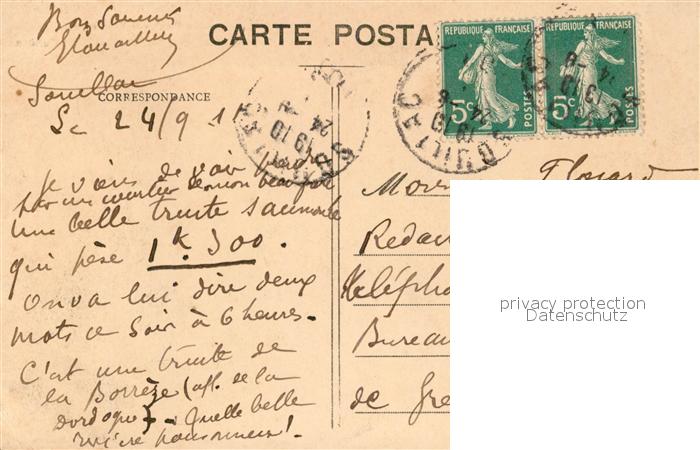 Bons Souvenirs
Souillac
CARTE POSTA
CORRESPONDANCE
Sc 24/9 1
Je viens de voir prendre
par un ouvrier de mon beau frère
une belle truite saumonée
qui pèse 1k 300.
On va lui dire deux
mots ce soir à 6 heures.
C'est une truite de
la Borrèze (aff. de la
Dordogne). Quelle belle
rivière poissonneuse!
REPUBLIQUE FRANÇAISE
5c
POSTES
REPUBLIQUE FRANÇAISE
5c
POSTES
SOUILLAC
24 - 9
1910
Mon
Redac
Télépho
Bureau
de Gre
privacy protection
Datenschutz